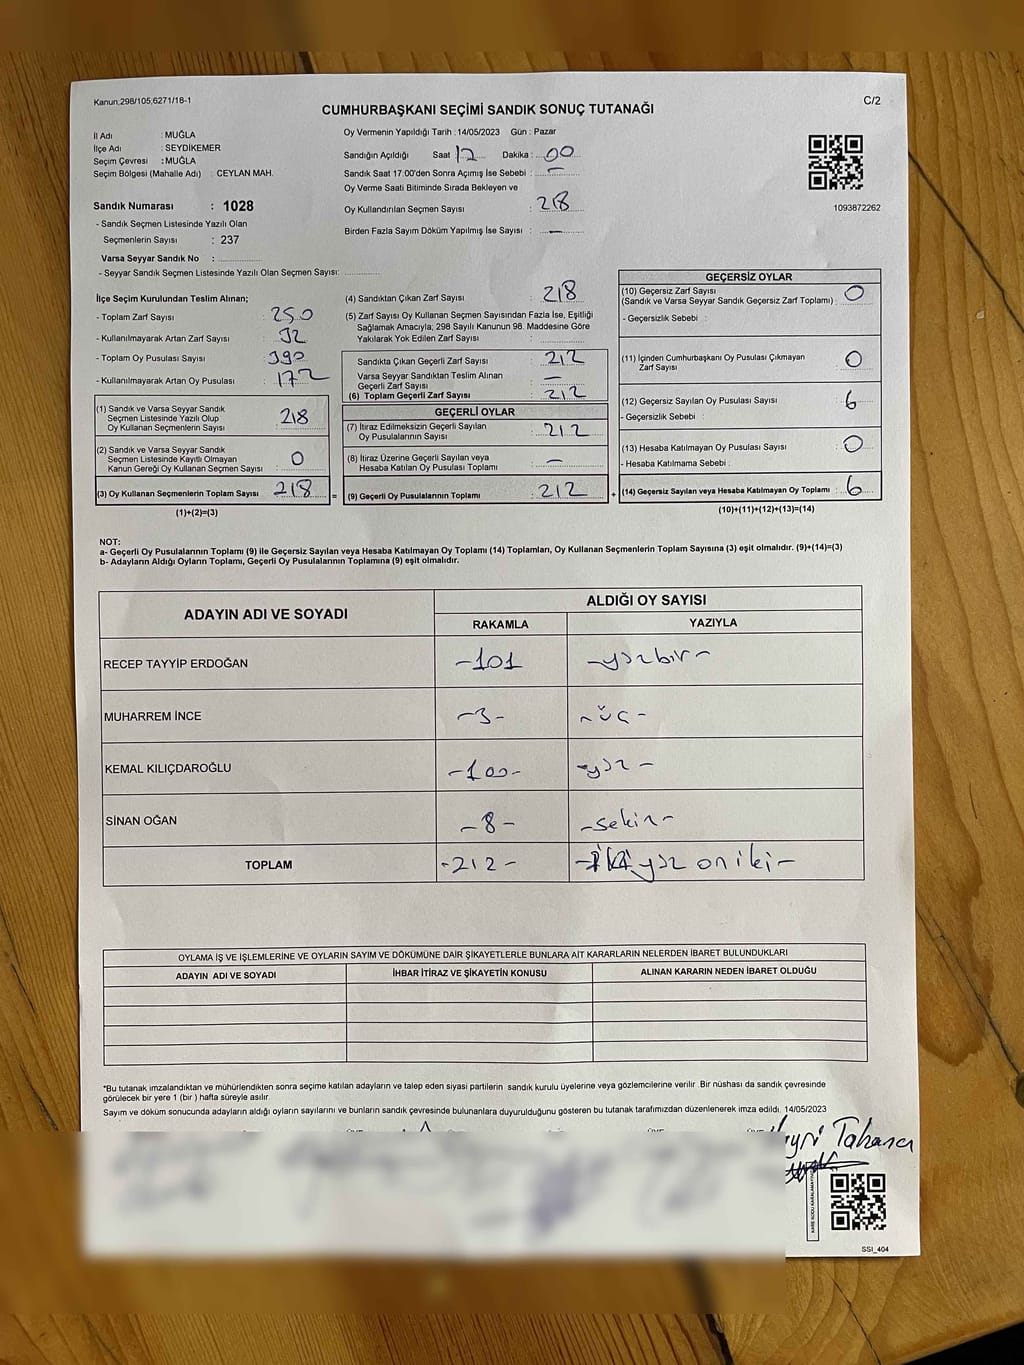 Kanun.298/105,6271/18-1
C/2
CUMHURBAŞKANI SEÇİMİ SANDIK SONUÇ TUTANAĞI
İl Adı : MUĞLA
İlçe Adı : SEYDİKEMER
Seçim Çevresi : MUĞLA
Seçim Bölgesi (Mahalle Adı) : CEYLAN MAH.
Sandık Numarası : 1028
- Sandık Seçmen Listesinde Yazılı Olan
Seçmenlerin Sayısı : 237
Varsa Seyyar Sandık No :
- Seyyar Sandık Seçmen Listesinde Yazılı Olan Seçmen Sayısı:
Oy Vermenin Yapıldığı Tarih : 14/05/2023 Gün : Pazar
Sandığın Açıldığı Saat 12 Dakika : 00
Sandık Saat 17.00'den Sonra Açımış İse Sebebi : —
Oy Verme Saati Bitiminde Sırada Bekleyen ve
Oy Kullandırılan Seçmen Sayısı : 218
Birden Fazla Sayım Döküm Yapılmış İse Sayısı : —
1093872262
İlçe Seçim Kurulundan Teslim Alınan;
- Toplam Zarf Sayısı : 250
- Kullanılmayarak Artan Zarf Sayısı : 32
- Toplam Oy Pusulası Sayısı : 390
- Kullanılmayarak Artan Oy Pusulası : 172
(1) Sandık ve Varsa Seyyar Sandık
Seçmen Listesinde Yazılı Olup
Oy Kullanan Seçmenlerin Sayısı : 218
(2) Sandık ve Varsa Seyyar Sandık
Seçmen Listesinde Kayıtlı Olmayan
Kanun Gereği Oy Kullanan Seçmen Sayısı : 0
(3) Oy Kullanan Seçmenlerin Toplam Sayısı : 218
(1)+(2)=(3)
(4) Sandıktan Çıkan Zarf Sayısı : 218
(5) Zarf Sayısı Oy Kullanan Seçmen Sayısından Fazla İse, Eşitliği
Sağlamak Amacıyla; 298 Sayılı Kanunun 98. Maddesine Göre
Yakılarak Yok Edilen Zarf Sayısı :
Sandıkta Çıkan Geçerli Zarf Sayısı : 212
Varsa Seyyar Sandıktan Teslim Alınan
Geçerli Zarf Sayısı : —
(6) Toplam Geçerli Zarf Sayısı : 212
GEÇERLİ OYLAR
(7) İtiraz Edilmeksizin Geçerli Sayılan
Oy Pusulalarının Sayısı : 212
(8) İtiraz Üzerine Geçerli Sayılan veya
Hesaba Katılan Oy Pusulası Toplamı : —
= (9) Geçerli Oy Pusulalarının Toplamı : 212 +
GEÇERSİZ OYLAR
(10) Geçersiz Zarf Sayısı
(Sandık ve Varsa Seyyar Sandık Geçersiz Zarf Toplamı) : 0
- Geçersizlik Sebebi :
(11) İçinden Cumhurbaşkanı Oy Pusulası Çıkmayan
Zarf Sayısı : 0
(12) Geçersiz Sayılan Oy Pusulası Sayısı : 6
- Geçersizlik Sebebi :
(13) Hesaba Katılmayan Oy Pusulası Sayısı : 0
- Hesaba Katılmama Sebebi :
(14) Geçersiz Sayılan veya Hesaba Katılmayan Oy Toplamı : 6
(10)+(11)+(12)+(13)=(14)
NOT:
a- Geçerli Oy Pusulalarının Toplamı (9) ile Geçersiz Sayılan veya Hesaba Katılmayan Oy Toplamı (14) Toplamları, Oy Kullanan Seçmenlerin Toplam Sayısına (3) eşit olmalıdır. (9)+(14)=(3)
b- Adayların Aldığı Oyların Toplamı, Geçerli Oy Pusulalarının Toplamına (9) eşit olmalıdır.
ADAYIN ADI VE SOYADI ALDIĞI OY SAYISI
RAKAMLA YAZIYLA
RECEP TAYYİP ERDOĞAN -101 -yüzbir-
MUHARREM İNCE -3- -üç-
KEMAL KILIÇDAROĞLU -100- -yüz-
SİNAN OĞAN -8- -sekiz-
TOPLAM -212- -İki yüz on iki-
OYLAMA İŞ VE İŞLEMLERİNE VE OYLARIN SAYIM VE DÖKÜMÜNE DAİR ŞİKAYETLERLE BUNLARA AİT KARARLARIN NELERDEN İBARET BULUNDUKLARI
ADAYIN ADI VE SOYADI İHBAR İTİRAZ VE ŞİKAYETİN KONUSU ALINAN KARARIN NEDEN İBARET OLDUĞU
*Bu tutanak imzalandıktan ve mühürlendikten sonra seçime katılan adayların ve talep eden siyasi partilerin sandık kurulu üyelerine veya gözlemcilerine verilir. Bir nüshası da sandık çevresinde
görülecek bir yere 1 (bir) hafta süreyle asılır.
Sayım ve döküm sonucunda adayların aldığı oyların sayılarını ve bunların sandık çevresinde bulunanlara duyurulduğunu gösteren bu tutanak tarafımızdan düzenlenerek imza edildi. 14/05/2023
SSI_404